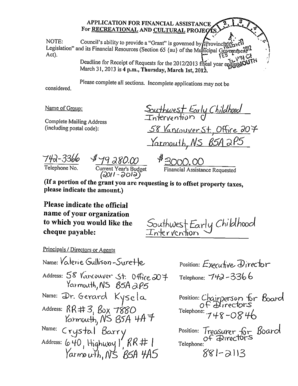 APPLICATION FOR FINANCIAL ASSISTANCE
For RECREATIONAL AND CULTURAL PROJECTS
NOTE: Council's ability to provide a "Grant" is governed by Provincial
Legislation" and its Financial Resources (Section 65 {au} of the Municipal
Act).
Deadline for Receipt of Requests for the 2012/2013 fiscal year
March 31, 2013 is 4 p.m., Thursday, March 1st, 2012.
Please complete all sections. Incomplete applications may not be
considered.
Name of Group: Southwest Early Childhood
Intervention
Complete Mailing Address
(including postal code): 58 Vancouver St, Office 207
Yarmouth, NS B5A 2P5
742-3366 $79280.00 $3000.00
Telephone No. Current Year's Budget Financial Assistance Requested
(2011-2012)
(If a portion of the grant you are requesting is to offset property taxes,
please indicate the amount.)
Please indicate the official
name of your organization
to which you would like the
cheque payable: Southwest Early Childhood
Intervention
Principals / Directors or Agents
Name: Valerie Gullison-Surette Position: Executive Director
Address: 58 Vancouver St. Office 207 Telephone: 742-3366
Yarmouth, NS B5A 2P5
Name: Dr. Gerard Kysela Position: Chairperson for Board
of Directors
Address: RR#3, Box 7880 Telephone: 748-0846
Yarmouth, NS B5A 4A7
Name: Crystal Barry Position: Treasurer for Board
of Directors
Address: 640, Highway 1, RR#1 Telephone:
Yarmouth, NS B5A 4A5 881-2113